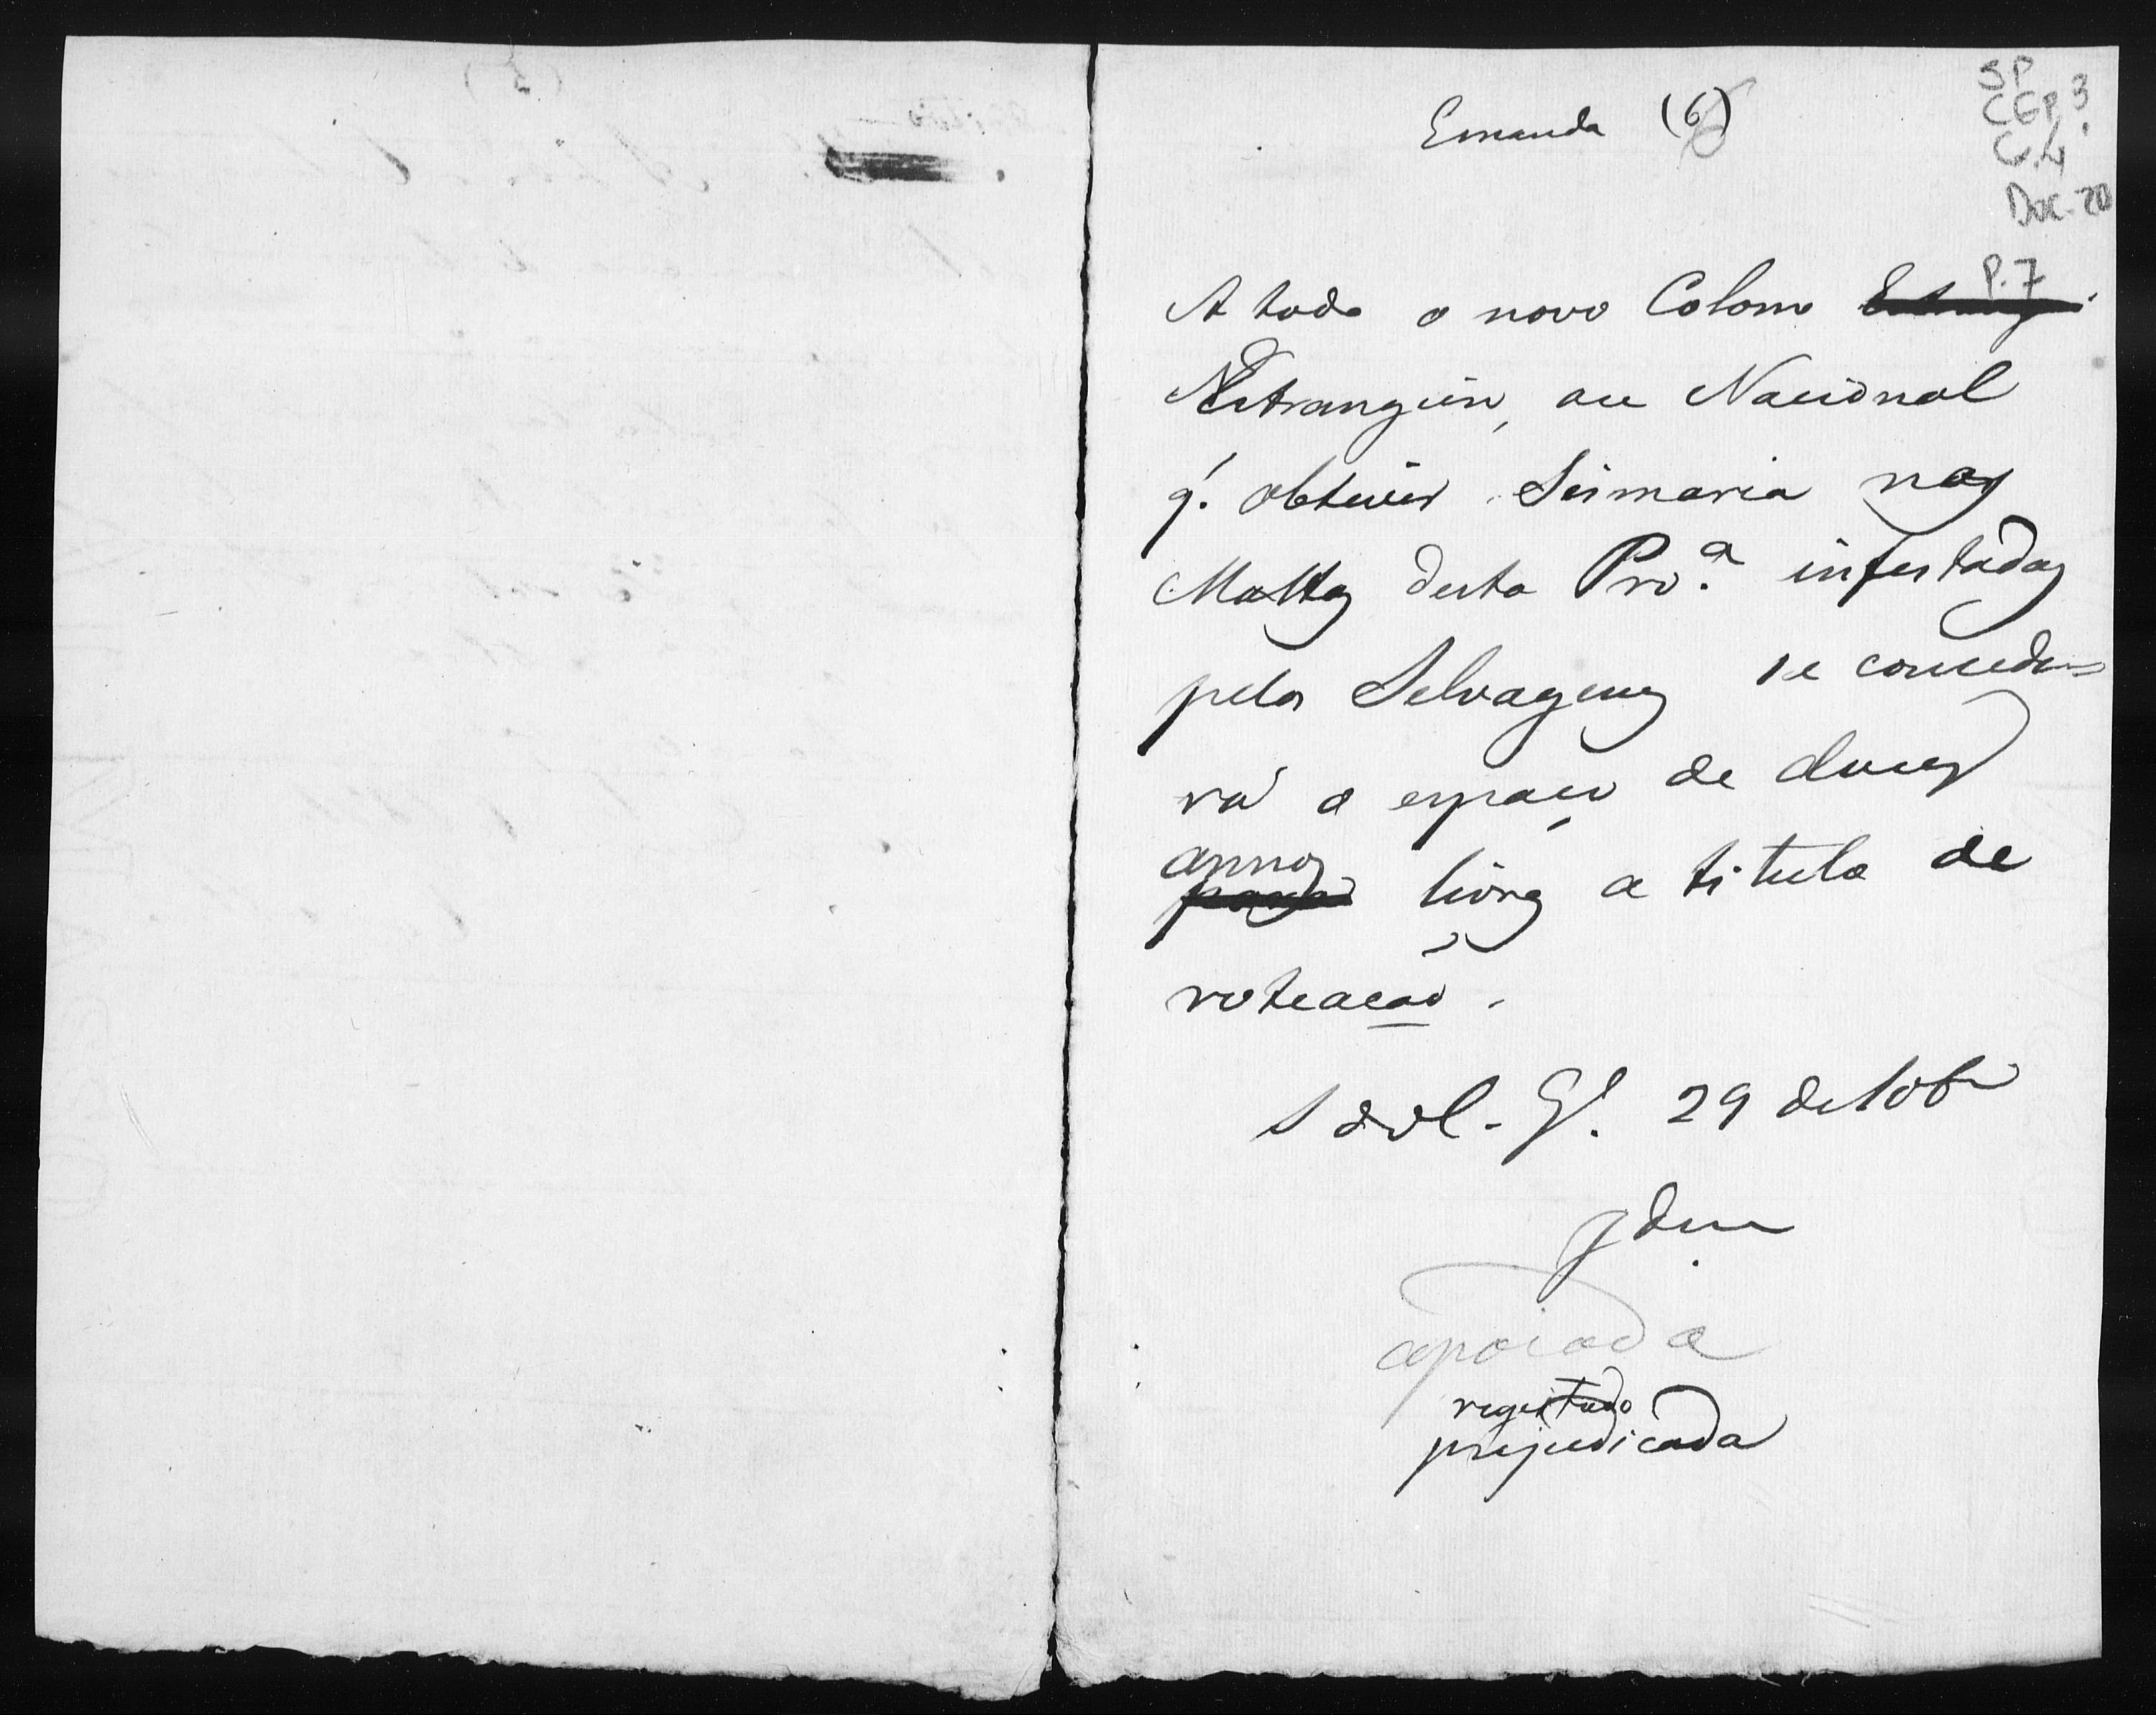 Emenda (6)
SP
CGP. 3
C. 4
Doc. 20
P. 7
A todo o novo Colono
Estrangeiro, ou Nacional
q. obtiver Sesmaria nas
Mattas desta Prov.ª infestadas
pelos Selvagens se concede-
rá o espaço de
annos livres a titulo de
roteação.
S do C. G. 29 de
Idem
apoiada
registado
prejudicada